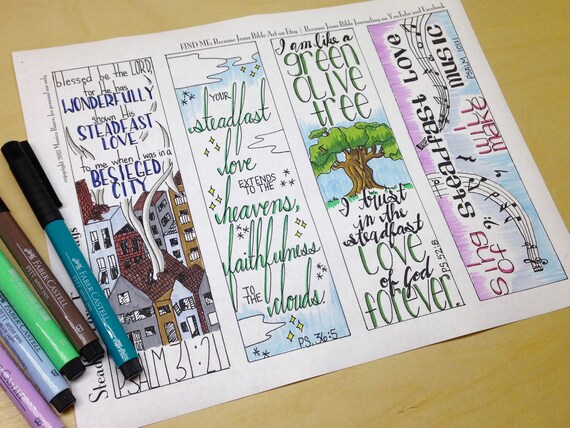 FIND ME: Because Jesus Bible Art on Etsy | Because Jesus Bible Journaling on YouTube and Facebook
blessed be the LORD,
for he has
WONDERFULLY
shown His
STEADFAST
LOVE
to me when I was in a
BESIEGED
CITY
PSALM 31:21
YOUR
steadfast
love
EXTENDS TO THE
heavens,
faithfulness
TO THE
clouds.
PS. 36:5
I am like a
green
olive
tree
I trust
in the
steadfast
love
of God
forever.
PS. 52:8
I will
sing
of
THE
STEADFAST LOVE
I make
MUSIC
FABER CASTELL
FABER CASTELL